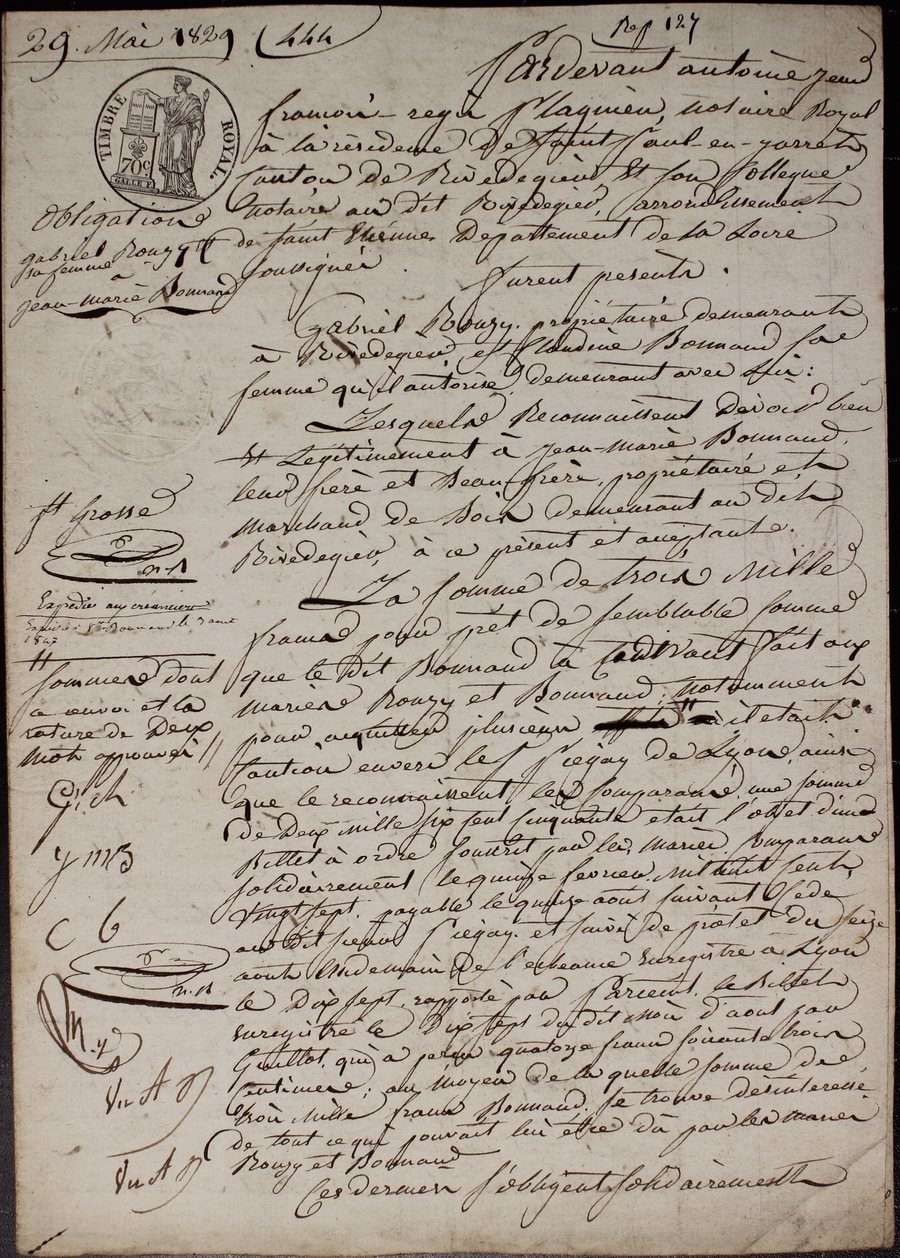 29. Mai 1829 (444
Rep 127
TIMBRE ROYAL.
70c
Pardevant antoine jean
francois regis Flaquieu, notaire Royal
à la résidence de Saint Paul-en-jarrêt
Canton de Rivedegier Et son Collegue
notaire au dit Rivedegier, arrondissement
de saint Etienne Departement de la Loire
soussignés.
furent présents.
Obligation
gabriel Rouzy et
sa femme
à
jean-marie Bonnand
Gabriel Rouzy, propriétaire demeurant
à Rivedegier, et Claudine Bonnand sa
femme qu'il autorise, demeurant avec lui:
Lesquels Reconnaissent Devoir bien
Et Légitimement à Jean-Marie Bonnand,
leur frère et Beau-frère, propriétaire et
marchand de Bois demeurant au dit
Rivedegier, à ce présent et acceptant.
La somme de trois Mille
francs pour prêt de semblable somme
que le dit Bonnand a cidevant fait aux
mariés Rouzy et Bonnand, notamment
pour acquitter plusieurs // il était
Caution envers le Sr Siegay de Lyon, ainsi
que le reconnaissent les Comparans, une somme
de Deux Mille six Cent Cinquante était l'objet d'un
Billet à ordre souscrit par les mariés Comparans
solidairement le quinze fevrier Mil huit Cent
vingt sept, payable le quinze aout suivant Cédé
au dit sieur Siegay, et suivi de protet du seize
aout lendemain de l'echeance Enregistré à Lyon
le Dix sept, rapporté par Parcent, le Billet
Enregistré le Dix sept du dit mois d'aout par
Guillot, qui a perçu quatorze francs soixante trois
Centimes; au moyen de la quelle somme de
trois Mille francs Bonnand se trouve désinteressé
de tout ce qui pouvait lui être dû par les mariés
Rouzy et Bonnand
Ces derniers s'obligent solidairement
ft Grosse
Expedié aux creanciers
Bonnand le 3 aout
1847
//
sommes dont
a renvoi et la
rature de Deux
mots approuvés //
G, ch
J m B
C B